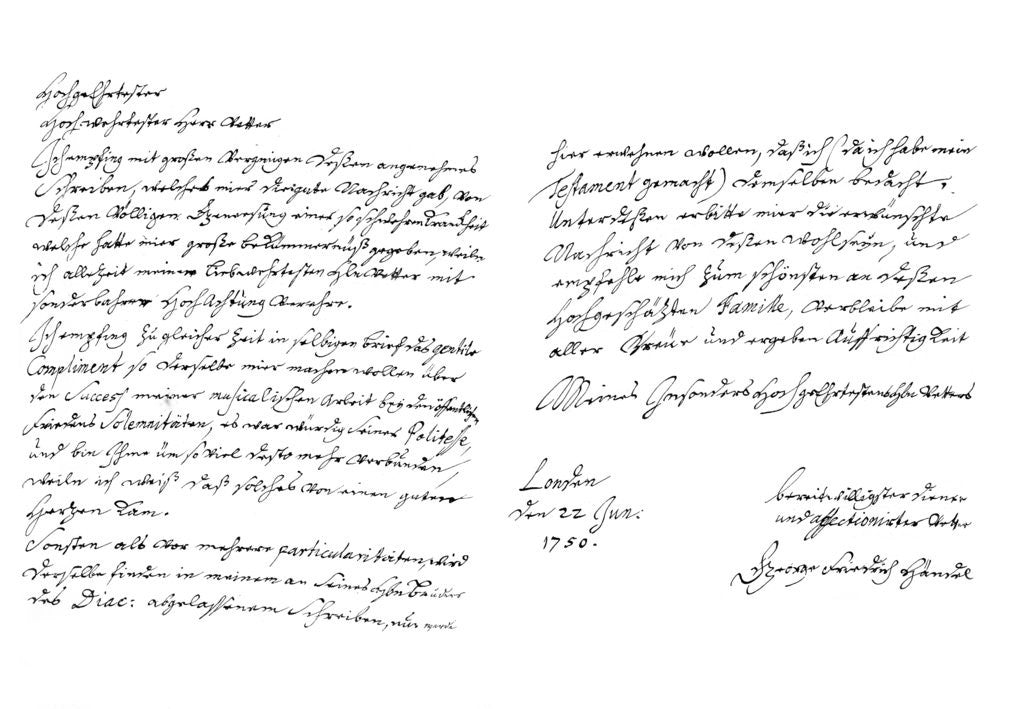 Hochgeehrtester
Hoch wehrtester Herr Vetter
Ich empfing mit großen Vergnügen deßen angenehmes
Schreiben, welches mier die gute Nachricht gab, von
deßen völligen Genesung einer so schwehren Kranckheit
welche hatte mier große bekümmernüß gegeben, weiln
ich allezeit meinen liebwehrtesten Hln Vetter mit
sonderbahrer HochAchtung verehre.
Ich empfing zu gleicher Zeit in selbigen brief das gentile
Compliment so derselbe mier machen wollen über
den Succesß meiner musicalischen Arbeit bey den öffentlichen
Friedens Solemnitäten, es war würdig seiner Politesse,
und bin Ihme um so viel desto mehr verbunden,
weiln ich weiß daß solches von einen guten
Hertzen kam.
Sonsten als vor mehrere particularitäten, wird
derselbe finden in meinem an seines Hln Bruders
des Diac: abgelassenem Schreiben, nur
hier erwehnen wollen, daß ich (da ich habe mein
Testament gemacht) demselben bedacht.
Unterdeßen erbitte mier die erwünschte
Nachricht von deßen wohlseyn, und
empfehle mich zum schönsten an deßen
Hochgeschätzten Famille, verbleibe mit
aller Treüe und ergeben Auffrichtigkeit
Meines Insonders Hochgeehrtesten Hln Vetters
London
den 22 Jun:
1750.
bereitwilligster diener
und affectionirter Vetter
George Friedrich Händel